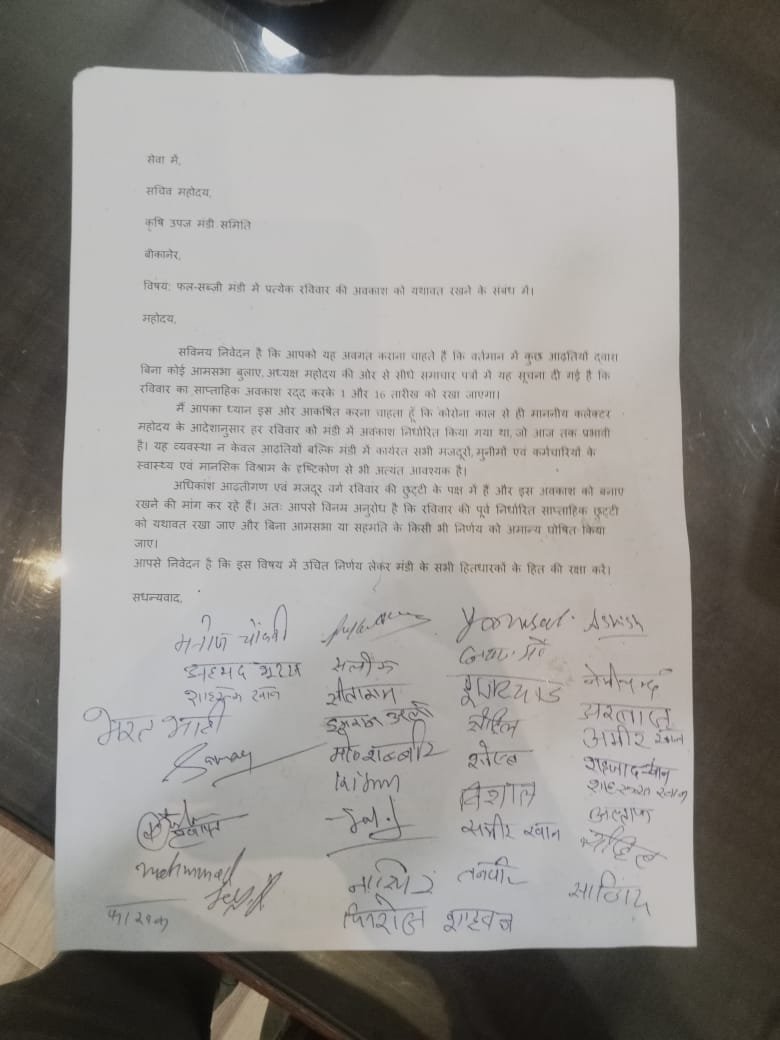 सेवा में,
सचिव महोदय,
कृषि उपज मंडी समिति
बीकानेर,
विषय: फल-सब्जी मंडी में प्रत्येक रविवार की अवकाश को यथावत रखने के संबंध में।
महोदय,
सविनय निवेदन है कि आपको यह अवगत कराना चाहते है कि वर्तमान में कुछ आढ़तियों द्वारा
बिना कोई आमसभा बुलाए, अध्यक्ष महोदय की ओर से सीधे समाचार पत्रों में यह सूचना दी गई है कि
रविवार का साप्ताहिक अवकाश रद्द करके 1 और 16 तारीख को रखा जाएगा।
मैं आपका ध्यान इस ओर आकर्षित करना चाहता हूँ कि कोरोना काल से ही माननीय कलेक्टर
महोदय के आदेशानुसार हर रविवार को मंडी में अवकाश निर्धारित किया गया था, जो आज तक प्रभावी
है। यह व्यवस्था न केवल आढ़तियों बल्कि मंडी में कार्यरत सभी मजदूरों, मुनीमों एवं कर्मचारियों के
स्वास्थ्य एवं मानसिक विश्राम के दृष्टिकोण से भी अत्यंत आवश्यक है।
अधिकांश आढ़तीगण एवं मजदूर वर्ग रविवार की छुट्टी के पक्ष में हैं और इस अवकाश को बनाए
रखने की मांग कर रहे हैं। अतः आपसे विनम्र अनुरोध है कि रविवार की पूर्व निर्धारित साप्ताहिक छुट्टी
को यथावत रखा जाए और बिना आमसभा या सहमति के किसी भी निर्णय को अमान्य घोषित किया
जाए।
आपसे निवेदन है कि इस विषय में उचित निर्णय लेकर मंडी के सभी हितधारकों के हित की रक्षा करें।
सधन्यवाद,
मनोज Ashish
सलीम
शाहरुख खान सीताराम
भरत भाटी
मो० शब्बीर अमीर खान
विशाल
समीर खान
नासिर तनवीर साजिद
फारुक फिरोज